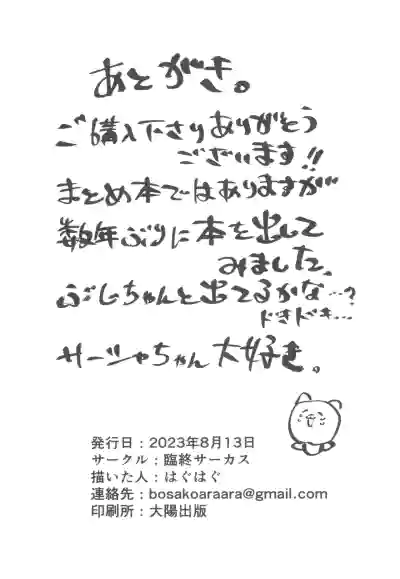 あとがき。
ご購入下さりありがとう
ございます!!
まとめ本ではありますが
数年ぶりに本を出して
みました。
ぶじちゃんと出てるかな…?
ドキドキ…
サーシャちゃん大好き。
発行日：2023年8月13日
サークル：臨終サーカス
描いた人：はぐはぐ
連絡先：bosakoaraara@gmail.com
印刷所：大陽出版